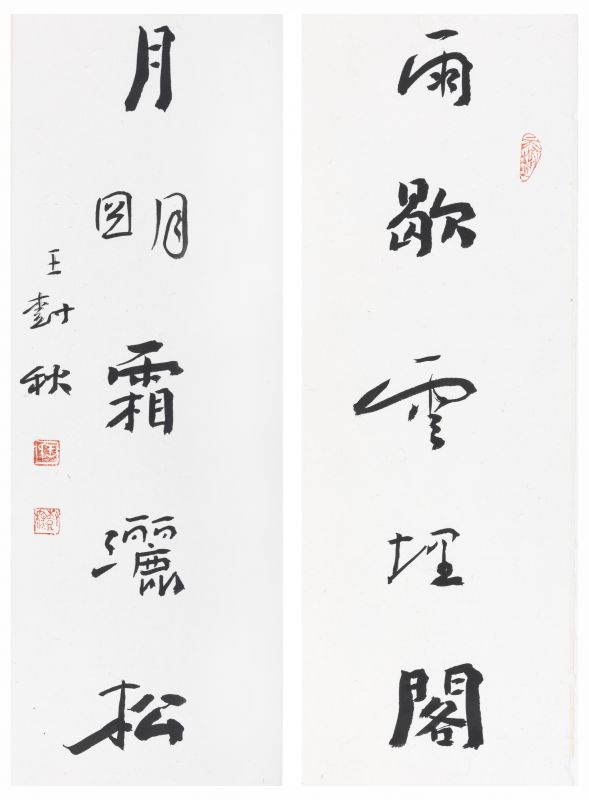 雨歇雲埋閣
月朙霜灑松
王樹秋